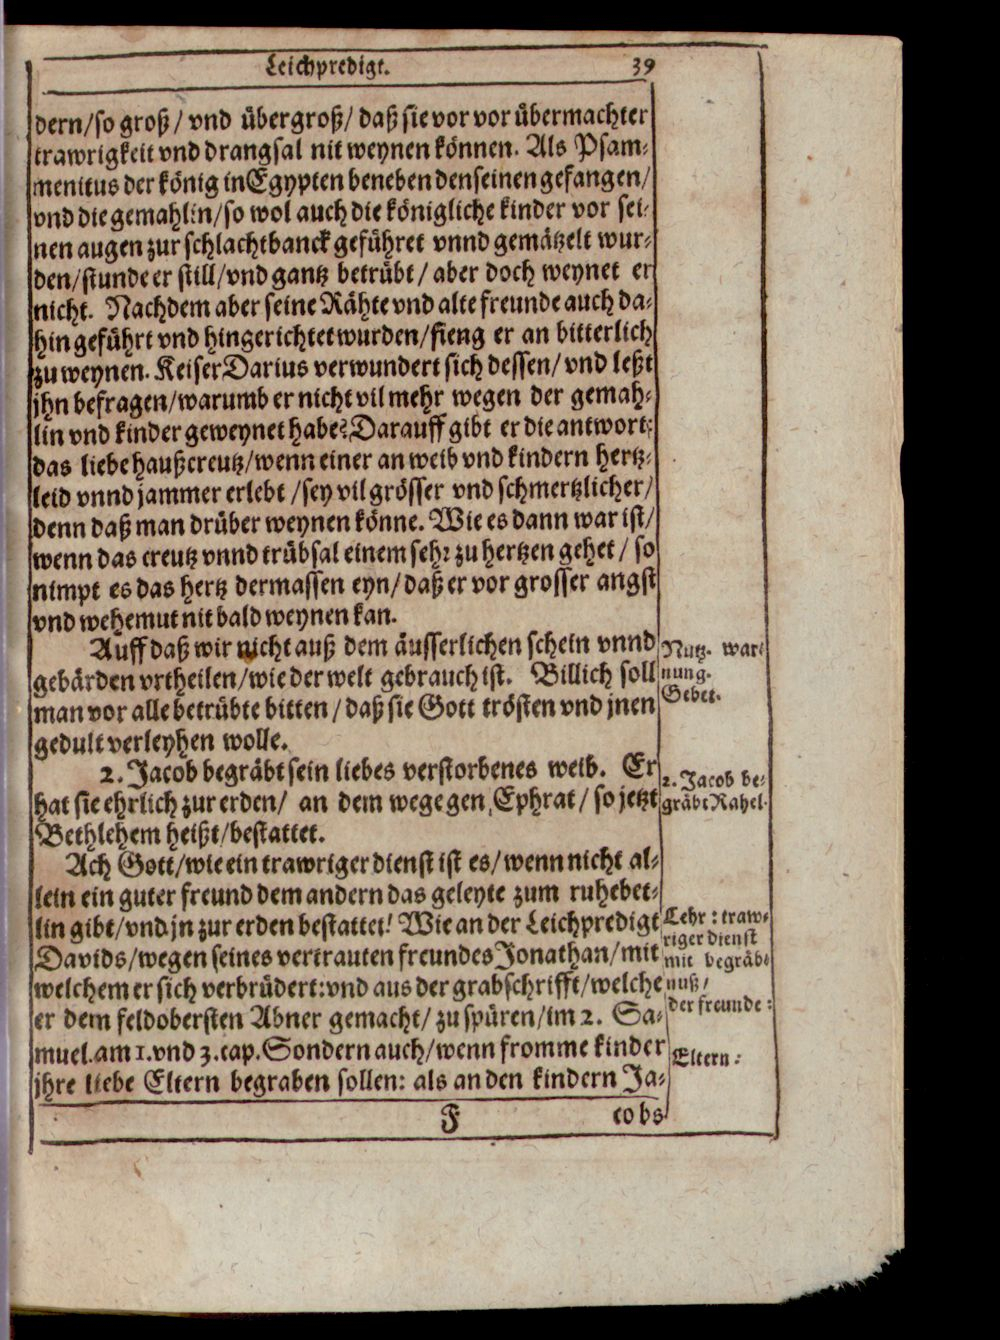 Leichpredigt. 39
dern/so groß/ vnd übergroß/ daß sie vor vor übermachter
trawrigkeit vnd drangsal nit weynen können. Als Psam-
menitus der könig in Egypten beneben den seinen gefangen/
vnd die gemahlin/so wol auch die königliche kinder vor sei-
nen augen zur schlachtbanck geführet vnnd gemätzelt wur-
den/stunde er still/vnd gantz betrübt/ aber doch weynet er
nicht. Nachdem aber seine Rähte vnd alte freunde auch da-
hin geführt vnd hingerichtet wurden/fieng er an bitterlich
zu weynen. Keiser Darius verwundert sich dessen/ vnd leßt
jhn befragen/warumb er nicht vil mehr wegen der gemah-
lin vnd kinder geweynet habe? Darauff gibt er die antwort:
das liebe haußcreutz/wenn einer an weib vnd kindern hertz-
leid vnnd jammer erlebt /sey vil grösser vnd schmertzlicher/
denn daß man drüber weynen könne. Wie es dann war ist/
wenn das creutz vnnd trübsal einem sehr zu hertzen gehet / so
nimpt es das hertz dermassen eyn/daß er vor grosser angst
vnd wehemut nit bald weynen kan.
Auff daß wir nicht auß dem äusserlichen schein vnnd
gebärden vrtheilen/wie der welt gebrauch ist. Billich soll
man vor alle betrübte bitten / daß sie Gott trösten vnd jnen
gedult verleyhen wolle.
Nutz. war-
nung.
Gebet.
2. Jacob begräbt sein liebes verstorbenes weib. Er
hat sie ehrlich zur erden/ an dem wege gen Ephrat/ so jetzt
Bethlehem heißt/bestattet.
2. Jacob be-
gräbt Rahel.
Ach Gott/wie ein trawriger dienst ist es/wenn nicht al-
lein ein guter freund dem andern das geleyte zum ruhebet-
lin gibt/vnd jn zur erden bestattet! Wie an der Leichpredigt
Davids/wegen seines vertrauten freundes Jonathan/mit
welchem er sich verbrüdert: vnd aus der grabschrifft/welche
er dem feldobersten Abner gemacht/ zu spüren/im 2. Sa-
muel. am 1. vnd 3. cap. Sondern auch/wenn fromme kinder
jhre liebe Eltern begraben sollen: als an den kindern Ja-
Lehr: traw-
riger dienst
mit begräb-
nuß/
der freunde:
Eltern:
F cobs